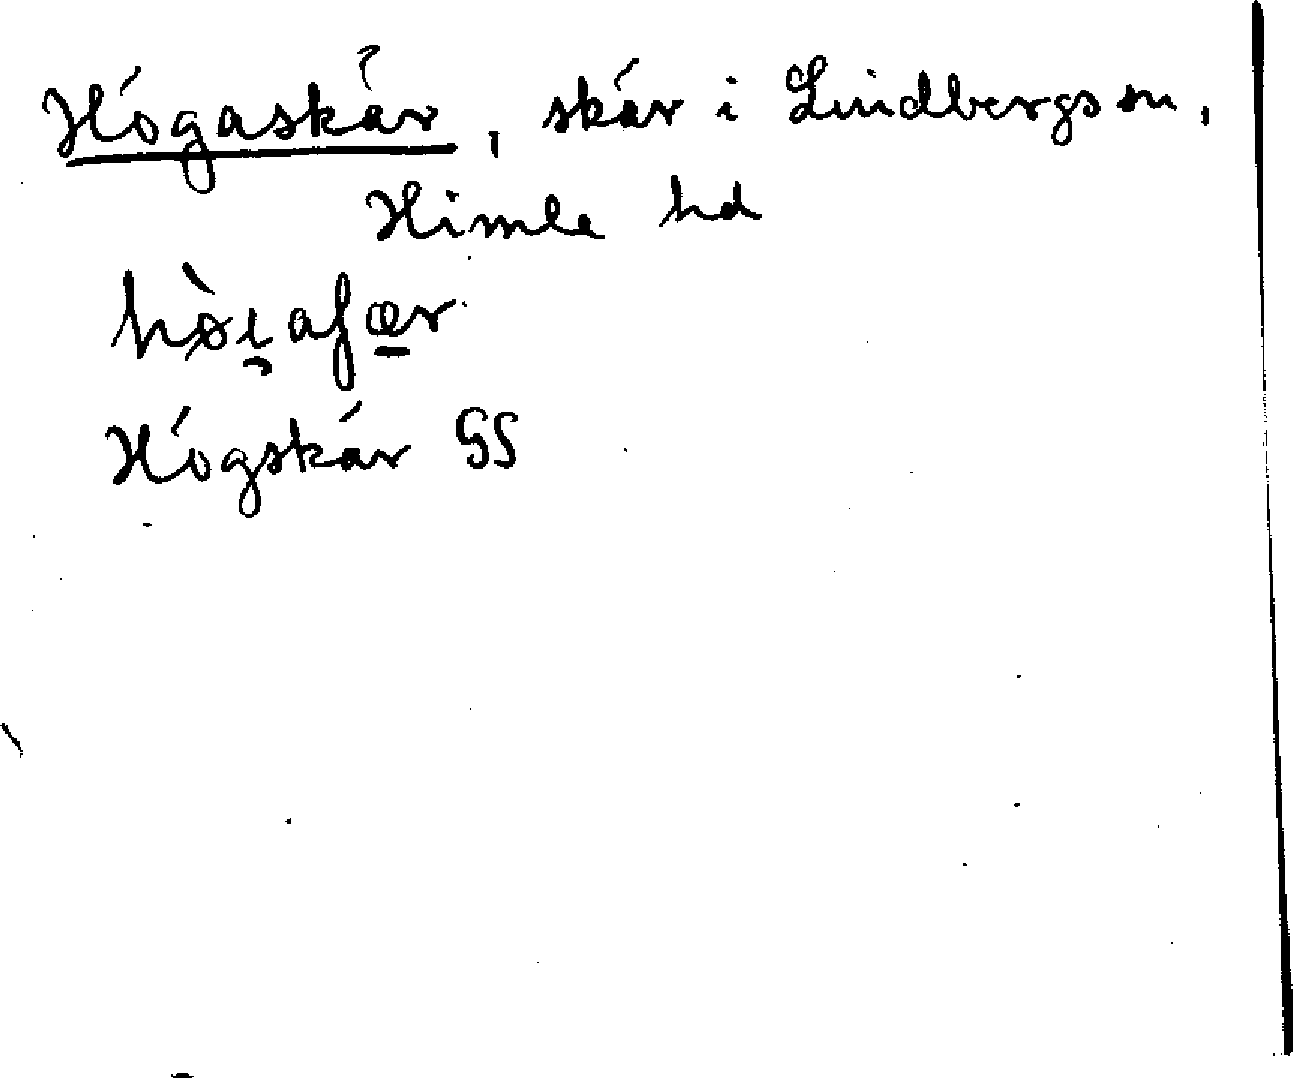 Högaskär, skär i Lindbergs sn,
Himle hd
hø̀i̯aʃæ̱r
Högskär GS